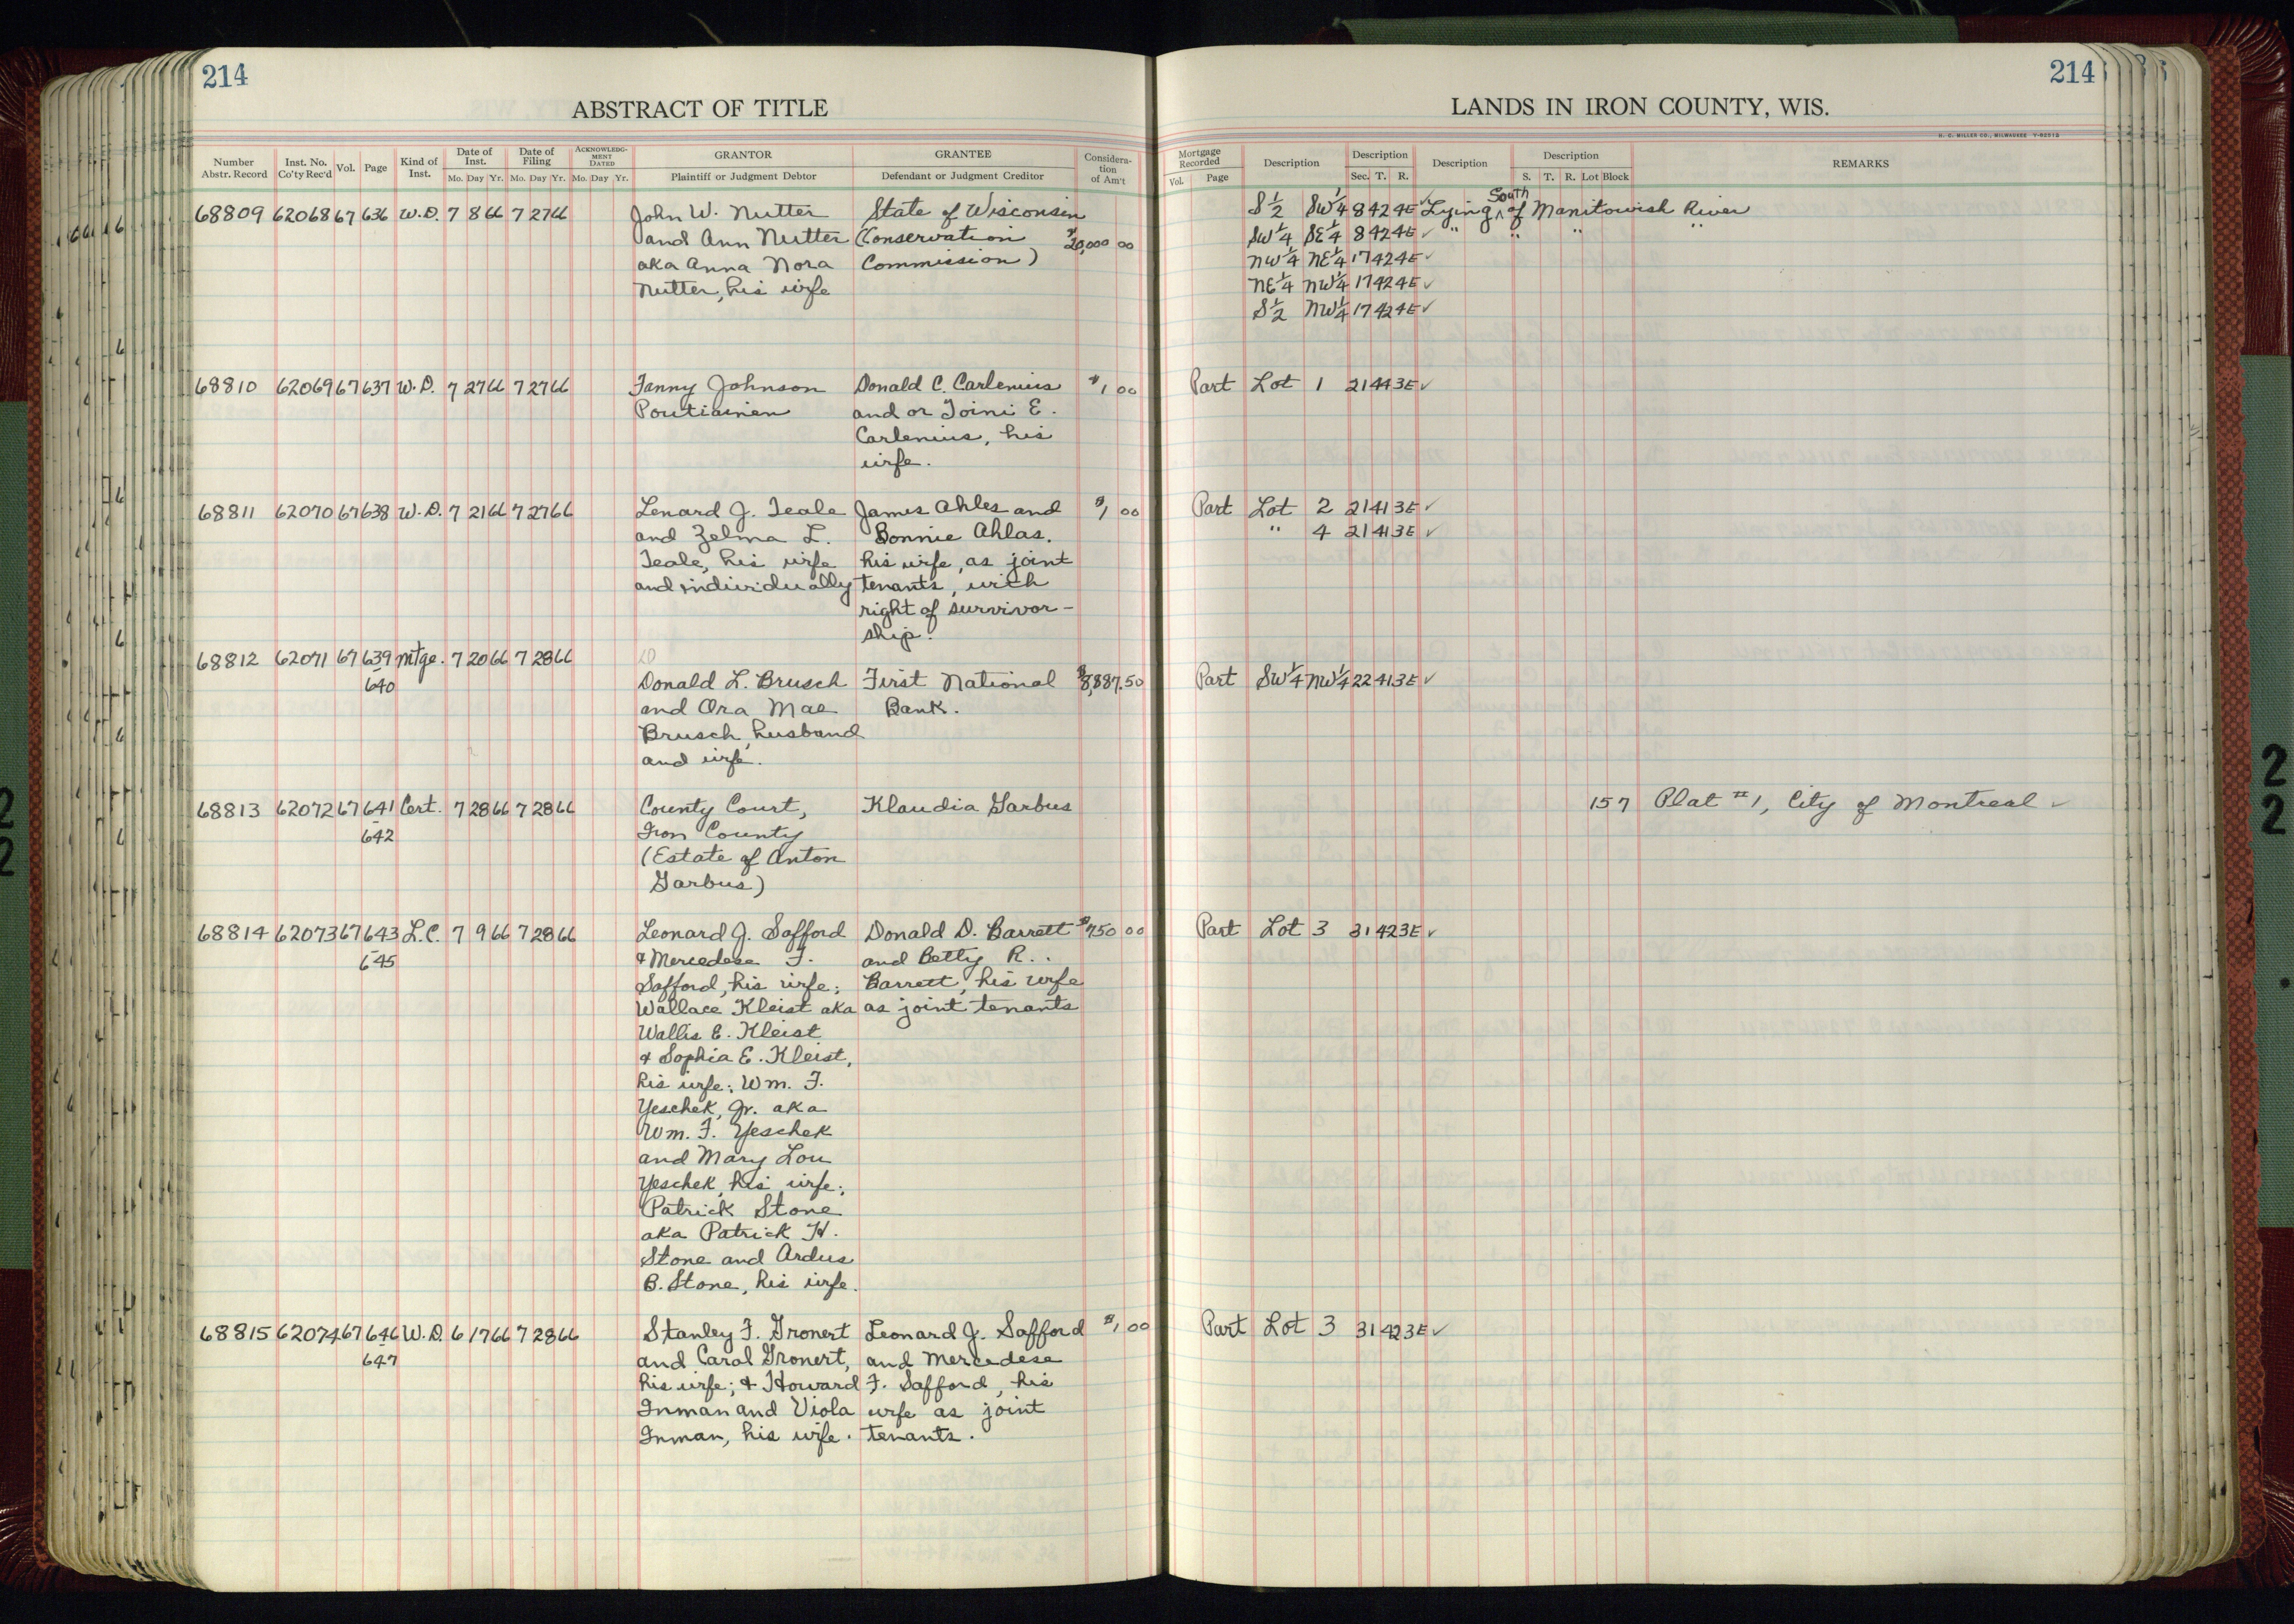 214
214
ABSTRACT OF TITLE
LANDS IN IRON COUNTY, WIS.
H. C. MILLER CO., MILWAUKEE Y-82513
Number Abstr. Record Inst. No. Co'ty Rec'd Vol. Page Kind of Inst. Date of Inst. Mo. Day Yr. Date of Filing Mo. Day Yr. ACKNOWLEDGMENT DATED Mo. Day Yr. GRANTOR Plaintiff or Judgment Debtor GRANTEE Defendant or Judgment Creditor Consideration of Am't
Mortgage Recorded Vol. Page Description Description Sec. T. R. Description Description S. T. R. Lot Block REMARKS
68809 62068 67 636 W.D. 7 8 66 7 27 66 John W. Nutter State of Wisconsin S½ SW¼ 8 42 4E ✓ Lying South of Manitowish River
and Ann Nutter (Conservation $20,000 00 SW¼ SE¼ 8 42 4E ✓ " " " "
aka Anna Nora Commission) NW¼ NE¼ 17 42 4E ✓
Nutter, his wife NE¼ NW¼ 17 42 4E ✓
S½ NW¼ 17 42 4E ✓
68810 62069 67 637 W.D. 7 27 66 7 27 66 Fanny Johnson Donald C. Carlenius $1 00 Part Lot 1 21 44 3E ✓
Poutiainen and or Toini E.
Carlenius, his
wife.
68811 62070 67 638 W.D. 7 21 66 7 27 66 Lenard J. Teale James Ahles and $1 00 Part Lot 2 21 41 3E ✓
and Zelma L. Bonnie Ahlas. " 4 21 41 3E ✓
Teale, his wife his wife, as joint
and individually tenants, with
right of survivor-
ship.
68812 62071 67 639 Mtge. 7 20 66 7 28 66
- 640 Donald L. Brusch First National $8,887.50 Part SW¼ NW¼ 22 41 3E ✓
and Ora Mae Bank.
Brusch, husband
and wife.
68813 62072 67 641 Cert. 7 28 66 7 28 66 County Court, Klaudia Garbus 157 Plat #1, City of Montreal ✓
- 642 Iron County
(Estate of Anton
Garbus)
68814 62073 67 643 L.C. 7 9 66 7 28 66 Leonard J. Safford Donald D. Barrett $750 00 Part Lot 3 31 42 3E ✓
- 645 & Mercedese F. and Betty R.
Safford, his wife; Barrett, his wife
Wallace Kleist aka as joint tenants
Wallis E. Kleist
& Sophia E. Kleist,
his wife; Wm. F.
Yeschek, Jr. aka
Wm. F. Yeschek
and Mary Lou
Yeschek, his wife;
Patrick Stone
aka Patrick H.
Stone and Ardus
B. Stone, his wife.
68815 62074 67 646 W.D. 6 17 66 7 28 66 Stanley F. Gronert Leonard J. Safford $1 00 Part Lot 3 31 42 3E ✓
- 647 and Carol Gronert, and Mercedese
his wife; & Howard F. Safford, his
Inman and Viola wife as joint
Inman, his wife. tenants.